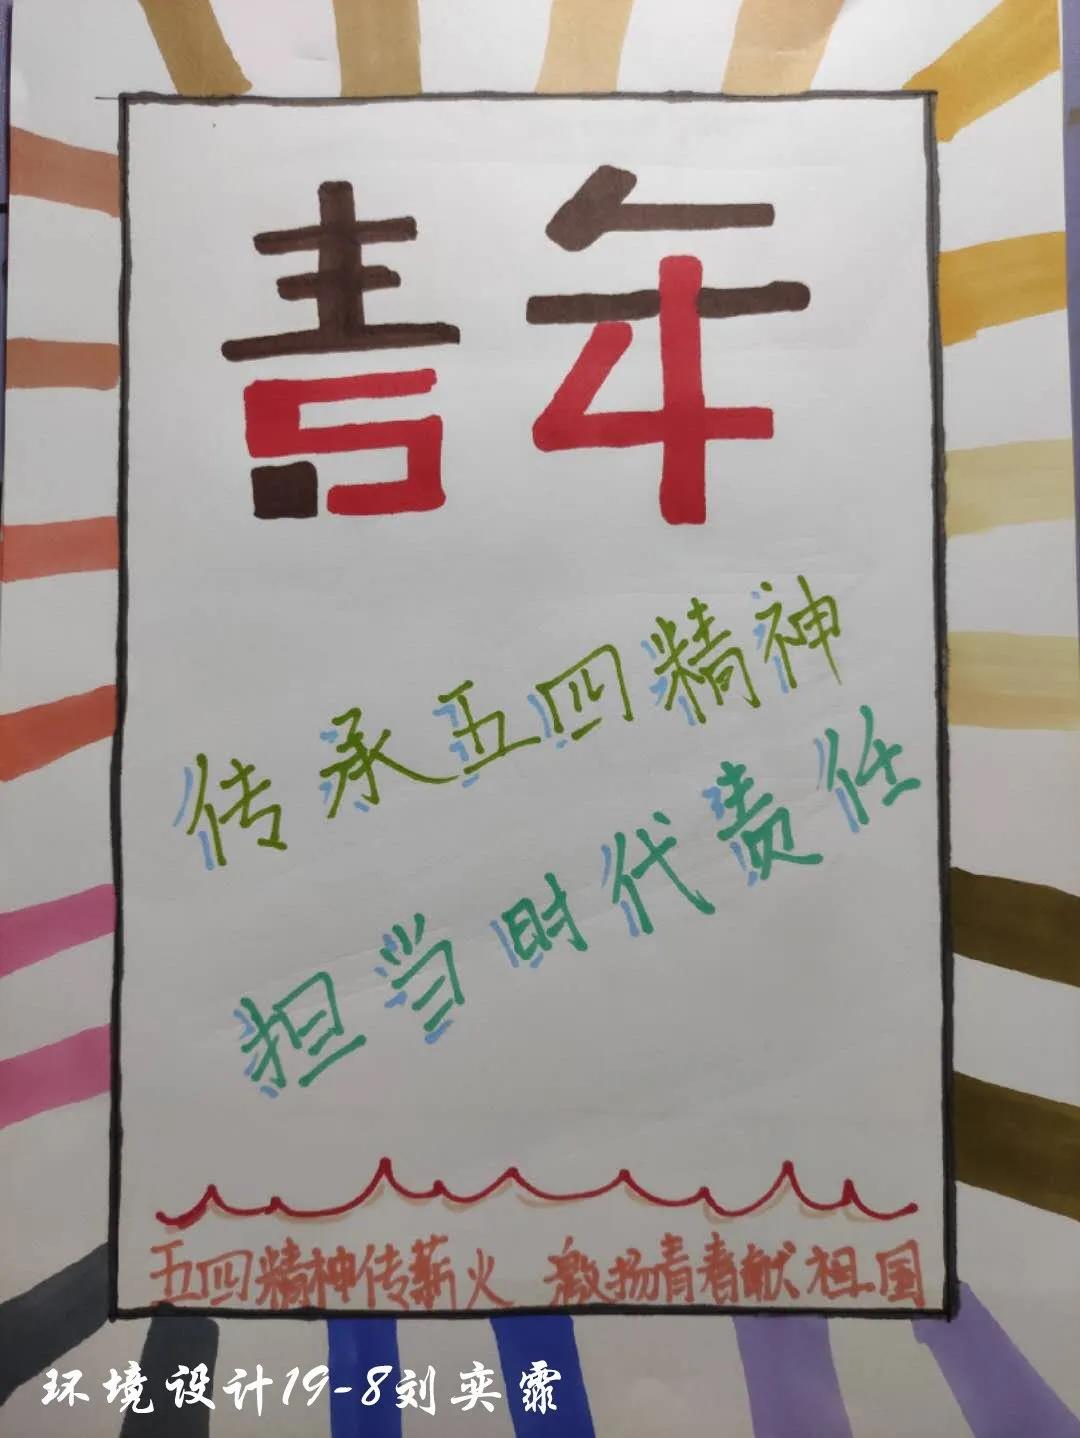 青年
传承五四精神
担当时代责任
五四精神传薪火 激扬青春献祖国
环境设计19-8刘奕霏